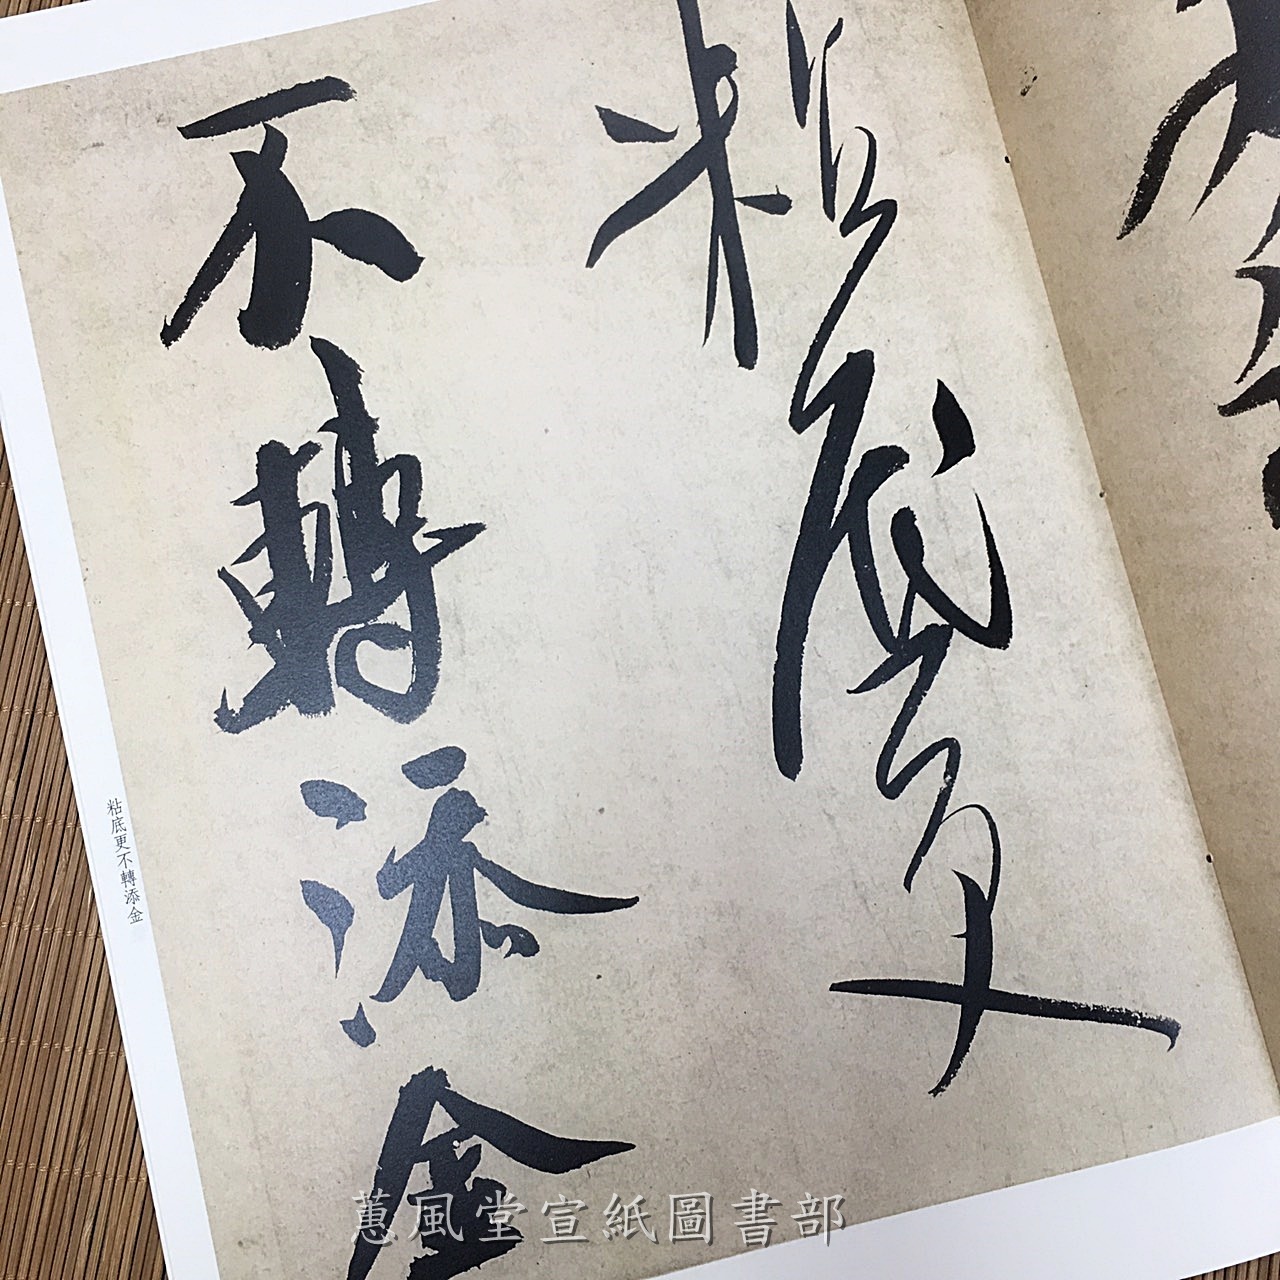 粘底更
不轉添金
粘底更不轉添金
蕙風堂宣紙圖書部